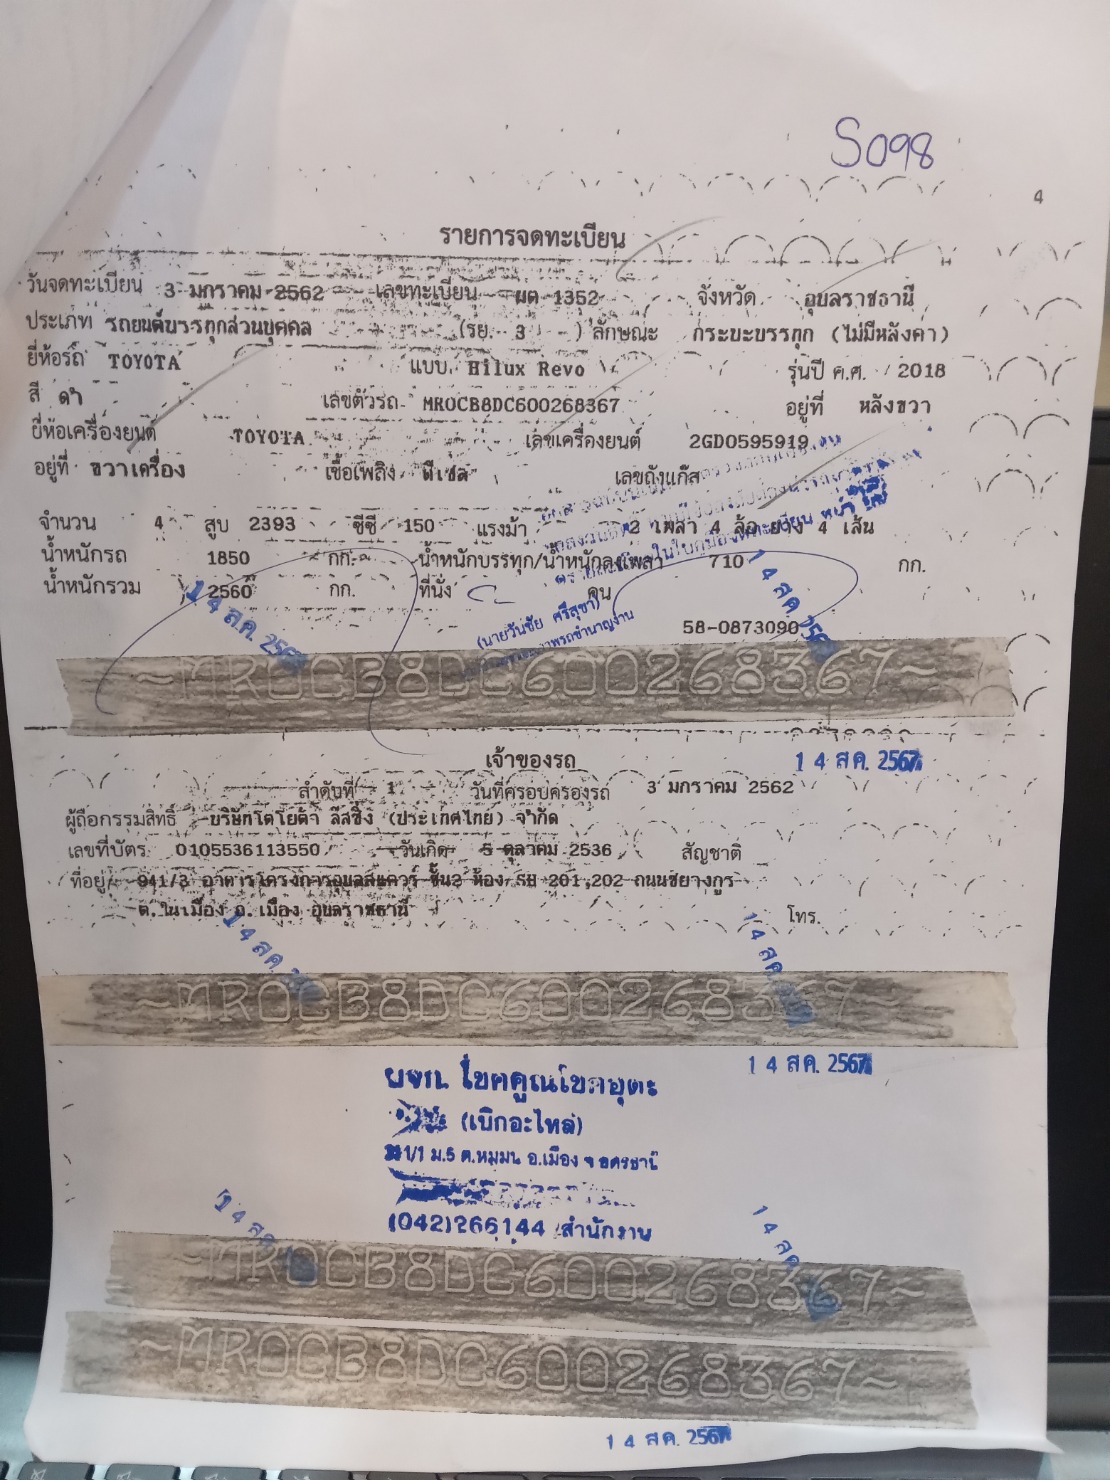 S098
4
รายการจดทะเบียน
วันจดทะเบียน 3 มกราคม 2562 เลขทะเบียน ผต 1352 จังหวัด อุบลราชธานี
ประเภท รถยนต์บรรทุกส่วนบุคคล (รย. 3 ) ลักษณะ กระบะบรรทุก (ไม่มีหลังคา)
ยี่ห้อรถ TOYOTA แบบ Hilux Revo รุ่นปี ค.ศ. 2018
สี ดำ เลขตัวรถ MR0CB8DC600268367 อยู่ที่ หลังขวา
ยี่ห้อเครื่องยนต์ TOYOTA เลขเครื่องยนต์ 2GD0595919
อยู่ที่ ขวาเครื่อง เชื้อเพลิง ดีเซล เลขถังแก๊ส
จำนวน 4 สูบ 2393 ซีซี 150 แรงม้า 2 เพลา 4 ล้อ ยาง 4 เส้น
น้ำหนักรถ 1850 กก. น้ำหนักบรรทุก/น้ำหนักลงเพลา 710 กก.
น้ำหนักรวม 2560 กก. ที่นั่ง คน
14 ส.ค. 2567
14 ส.ค. 2567
(นายวันชัย ศรีสุขา)
58-0873090
~MR0CB8DC600268367~
เจ้าของรถ
14 ส.ค. 2567
ลำดับที่ 1 วันที่ครอบครองรถ 3 มกราคม 2562
ผู้ถือกรรมสิทธิ์ บริษัทโตโยต้า ลีสซิ่ง (ประเทศไทย) จำกัด
เลขที่บัตร 0105536113550 วันเกิด 5 ตุลาคม 2536 สัญชาติ
ที่อยู่ 941/3 อาคารโครงการอุบลสแควร์ ชั้น2 ห้อง SH 201,202 ถนนชยางกูร
ต.ในเมือง อ.เมือง อุบลราชธานี โทร.
14 ส.ค.
14 ส.ค.
~MR0CB8DC600268367~
14 ส.ค. 2567
หจก. โชคคูณโชคอุดร
(เบิกอะไหล่)
ม.5 ต.หมูม่น อ.เมือง จ.อุดรธานี
(042)266144 สำนักงาน
14 ส.ค.
14 ส.ค.
~MR0CB8DC600268367~
~MR0CB8DC600268367~
14 ส.ค. 2567